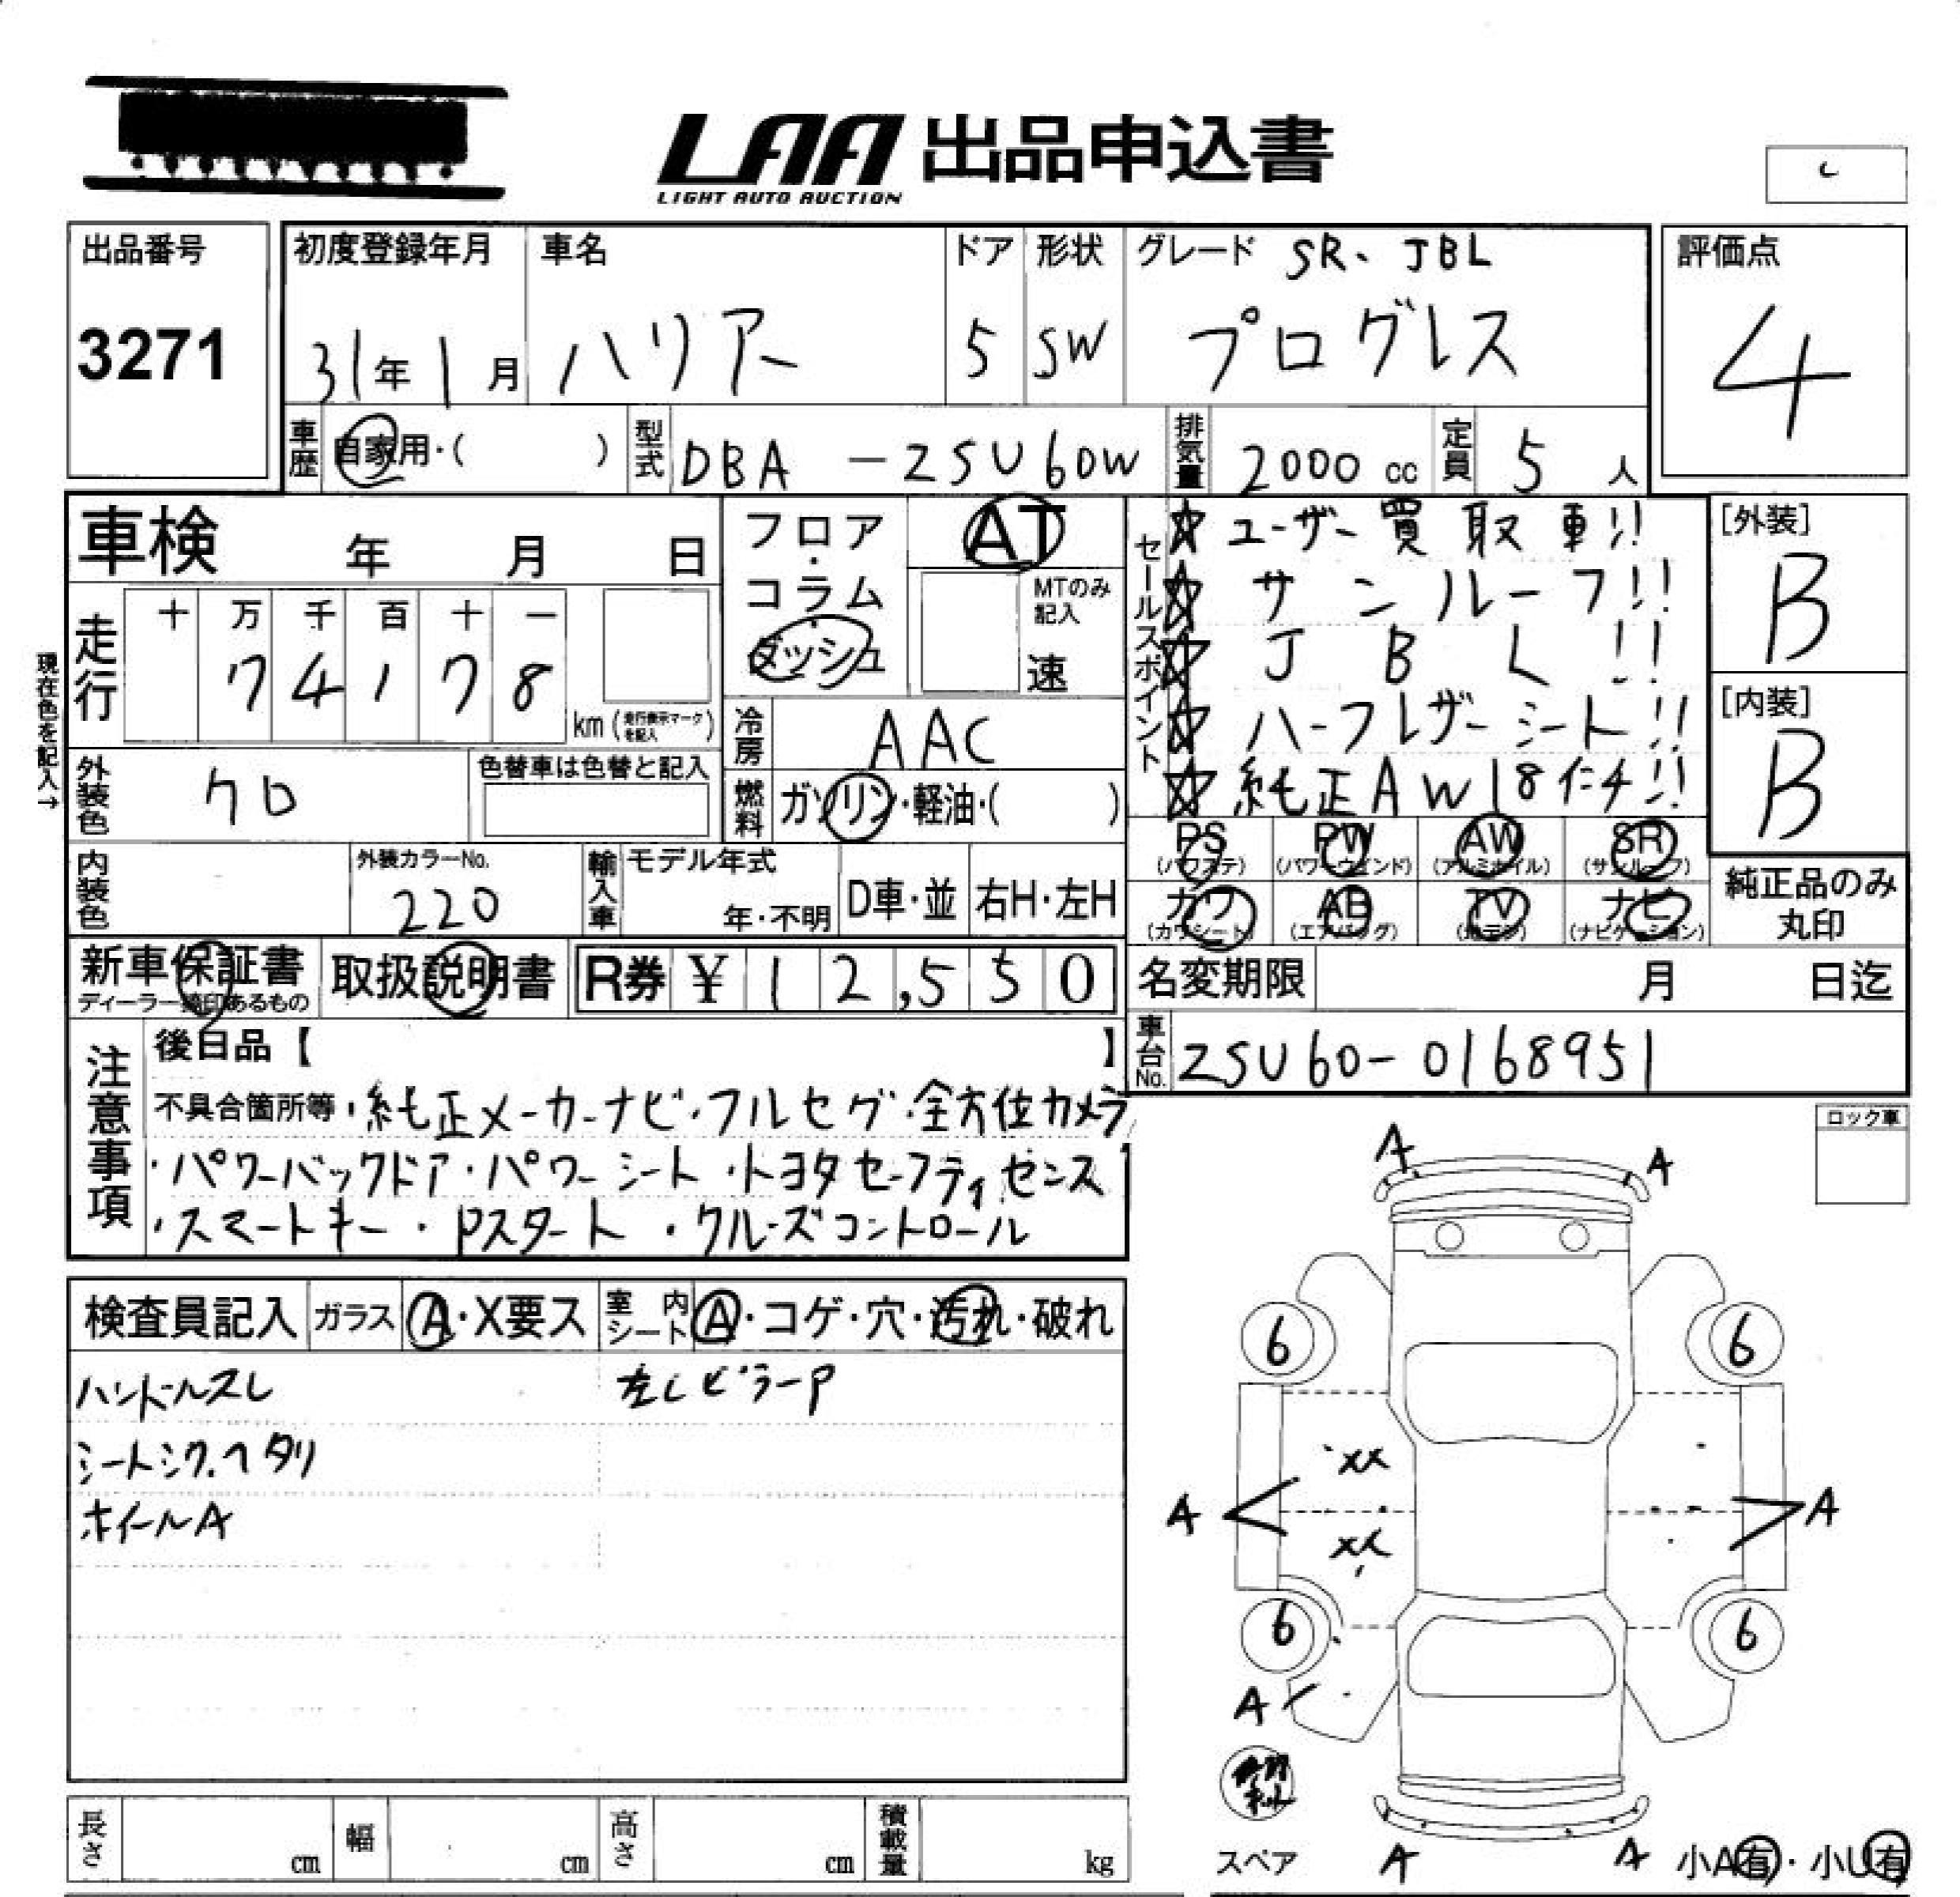 LAA 出品申込書
LIGHT AUTO AUCTION
出品番号
3271
初度登録年月
31年1月
車名
ハリアー
ドア
5
形状
SW
グレード SR、JBL
プログレス
評価点
4
車歴
自家用・( )
型式
DBA -ZSU60W
排気量
2000 cc
定員
5 人
車検 年 月 日
フロア・コラム・ダッシュ
AT
MTのみ記入
速
セールスポイント
☆ユーザー買取車!!
☆サンルーフ!!
☆JBL!!
☆ハーフレザーシート!!
☆純正AW18インチ!!
[外装]
B
[内装]
B
現在色を記入→
走行
十 万 千 百 十 一
7 4 1 7 8
km (走行表示マークを記入)
冷房
AAC
外装色
クロ
色替車は色替と記入
燃料
ガソリン・軽油・( )
内装色
外装カラーNo.
220
輸入車
モデル年式
年・不明
D車・並
右H・左H
PS (パワステ)
PW (パワーウィンド)
AW (アルミホイル)
SR (サンルーフ)
カワ (カワシート)
AB (エアバッグ)
TV (地デジ)
ナビ (ナビゲーション)
純正品のみ丸印
新車保証書
取扱説明書
R券 ¥12,550
名変期限 月 日迄
車台No.
ZSU60-0168951
注意事項
後日品【 】
不具合箇所等・純正メーカーナビ・フルセグ・全方位カメラ
・パワーバックドア・パワーシート・トヨタセーフティセンス
・スマートキー・Pスタート・クルーズコントロール
ロック車
検査員記入
ガラス
A・X要ス
室内シート
A・コゲ・穴・汚れ・破れ
ハンドルスレ
シートシワ.ヘタリ
ホイールA
左CピラーP
A A
6 6
XX
A A
XX
6 6
A
スペア
A A
小A有・小U有
長さ cm
幅 cm
高さ cm
積載量 kg